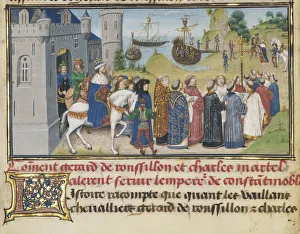 Coment gerard de roussillon et charles martel
alerent servir lempereʳ de constātinoble
Listoire racompte que quant les vaillans
chevalliers gerard de roussillon ⁊ charles